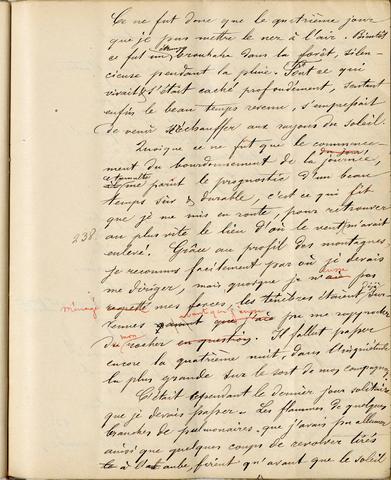 Ce ne fut donc que le quatrième jour
que je pus mettre le nez à l'air. Bientôt
ce fut un brouhaha dans la forêt, silen-
cieuse pendant la pluie. Tout ce qui
vivait & s'était caché profondément, sortant
enfin le beau temps revenu, s'empressait
de venir réchauffer aux rayons du soleil.
Quoique ce ne fut que le commence-
du jour,
ment du bourdonnement de la journée,
ce tumulte
me parût le prognostic d'un beau
temps sûr & durable, c'est ce qui fit
que je me mis en route, pour retrouver
238.
au plus vite le lieu d'où le vent m'avait
enlevé. Grâce au profil des montagnes
je reconnus facilement par où je devais
eusse
me diriger, mais quoique je n'ai pas
Ménagé
déjà
regretté mes forces, les ténèbres étaient sur-
avant que j'eusse
venues avant que j'aie pu me rapprocher
mon
du rocher en question. Il fallut passer
encore la quatrième nuit, dans l'inquiétude
la plus grande sur le sort de mes compagnons
C'était cependant le dernier jour solitaire
que je devais passer. Les flammes de quelques
branches de pulmonaires, que j'avais pu allumer,
ainsi que quelques coups de revolver tirés
à l'aube, firent qu'avant que le soleil